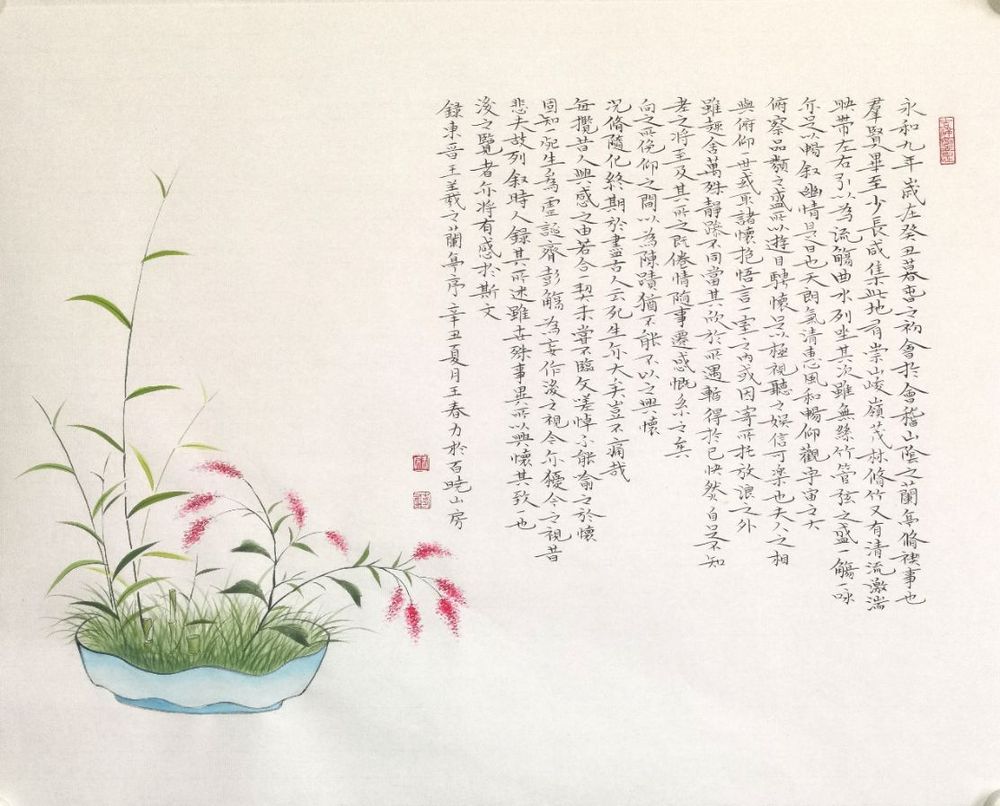 永和九年歲在癸丑暮春之初會於會稽山陰之蘭亭脩禊事也
羣賢畢至少長咸集此地有崇山峻嶺茂林脩竹又有清流激湍
映帶左右引以為流觴曲水列坐其次雖無絲竹管弦之盛一觴一咏
亦足以暢叙幽情是日也天朗氣清惠風和暢仰觀宇宙之大
俯察品類之盛所以遊目騁懷足以極視聽之娛信可樂也夫人之相
與俯仰一世或取諸懷抱悟言一室之內或因寄所托放浪之外
雖趣舍萬殊靜躁不同當其欣於所遇暫得於己快然自足不知
老之將至及其所之既倦情隨事遷感慨系之矣
向之所俛仰之間以為陳蹟猶不能不以之興懷
況脩隨化終期於盡古人云死生亦大矣豈不痛哉
每攬昔人興感之由若合一契未嘗不臨文嗟悼不能喻之於懷
固知一死生為虛誕齊彭殤為妄作後之視今亦猶今之視昔
悲夫故列叙時人錄其所述雖世殊事異所以興懷其致一也
後之覽者亦將有感於斯文
錄東晉王羲之蘭亭序辛丑夏月王春力於百曉山房